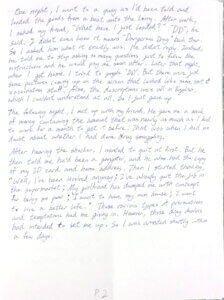 One night, I went to a quay as I'd been told and
loaded the goods from a boat onto the lorry. After work,
I asked my friend, "What have I just loaded?" "DD", he
said. I didn't even know it means Dangerous Drug back then.
So I asked him what it exactly was. He didn't reply. Instead,
he told me to stop asking so many questions, just to follow the
instructions and he would pay me soon after. Later that night
when I got home, I tried to google 'DD'. But there were just
some pictures on the screen that looked like some sort of
stuff. Also, the descriptions were all in English,
which I couldn't understand at all. So I just gave up.
The following night, I met up with my friend. He gave me a sack
of money containing the amount that was nearly as much as I had
to work for a month to get it before. That was when I had no
doubt about whether I had done drug smuggling.
After hearing the story, I wanted to quit at first. But he
then told me he'd been a gangster, and he also had the copy
of my ID card and home address. Then I started thinking,
"Well, I've been involved anyway; I've already quit the job in
the supermarket; My girlfriend has dumped me with contempt
for being so poor; I want to have my own house; I want
to live a better life." These various types of provocations
and temptations had me giving in. However, those drug dealers
had intended to set me up. So I was arrested shortly after
a few days.
P.2